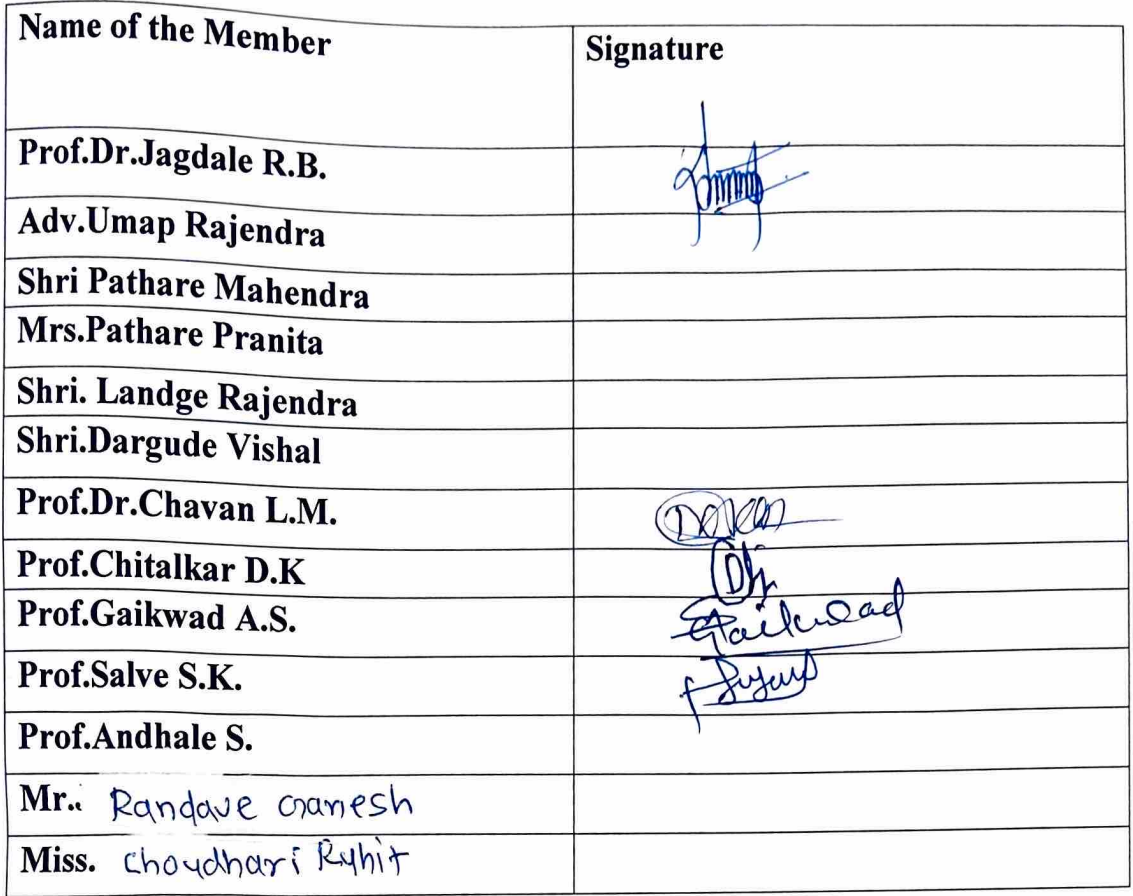 Name of the Member
Signature
Prof.Dr.Jagdale R.B.
Adv.Umap Rajendra
Shri Pathare Mahendra
Mrs.Pathare Pranita
Shri. Landge Rajendra
Shri.Dargude Vishal
Prof.Dr.Chavan L.M.
Prof.Chitalkar D.K
Prof.Gaikwad A.S. Gaikwad
Prof.Salve S.K.
Prof.Andhale S.
Mr.. Randave Ganesh
Miss. Choudhari